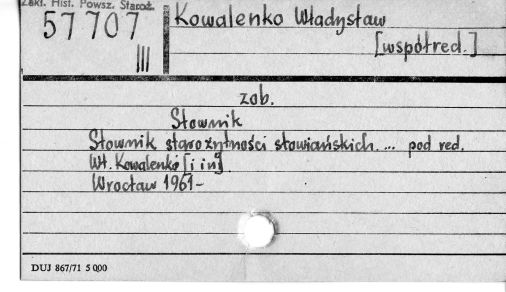 Zakł. Hist. Powsz. Staroż.
57707
III
Kowalenko Władysław
[współred.]
zob.
Słownik
Słownik starożytności słowiańskich.... pod red.
Wł. Kowalenki [i in]
Wrocław 1961-
DUJ 867/71 5 000